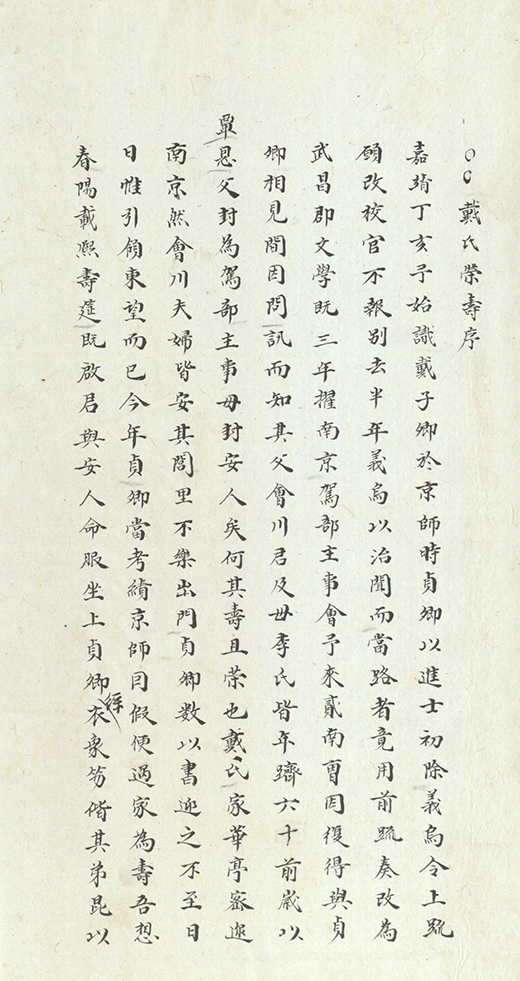 ○○戴氏榮壽序
嘉靖丁亥予始識戴子卿於京師時貞卿以進士初除義烏令上疏
願改校官不報別去半年義烏以治聞而當路者竟用前疏奏改為
武昌郡文學既三年擢南京駕部主事會予來貳南曹因復得與貞
卿相見間因問訊而知其父會川君及母李氏皆年躋六十前歲以
覃恩父封為駕部主事母封安人矣何其壽且榮也戴氏家華亭密邇
南京然會川夫婦皆安其閭里不樂出門貞卿數以書迎之不至日
日惟引領東望而已今年貞卿當考績京師因假便過家為壽吾想
春陽載熙壽筵既啟君與安人命服坐上貞卿綵衣象笏偕其弟昆以